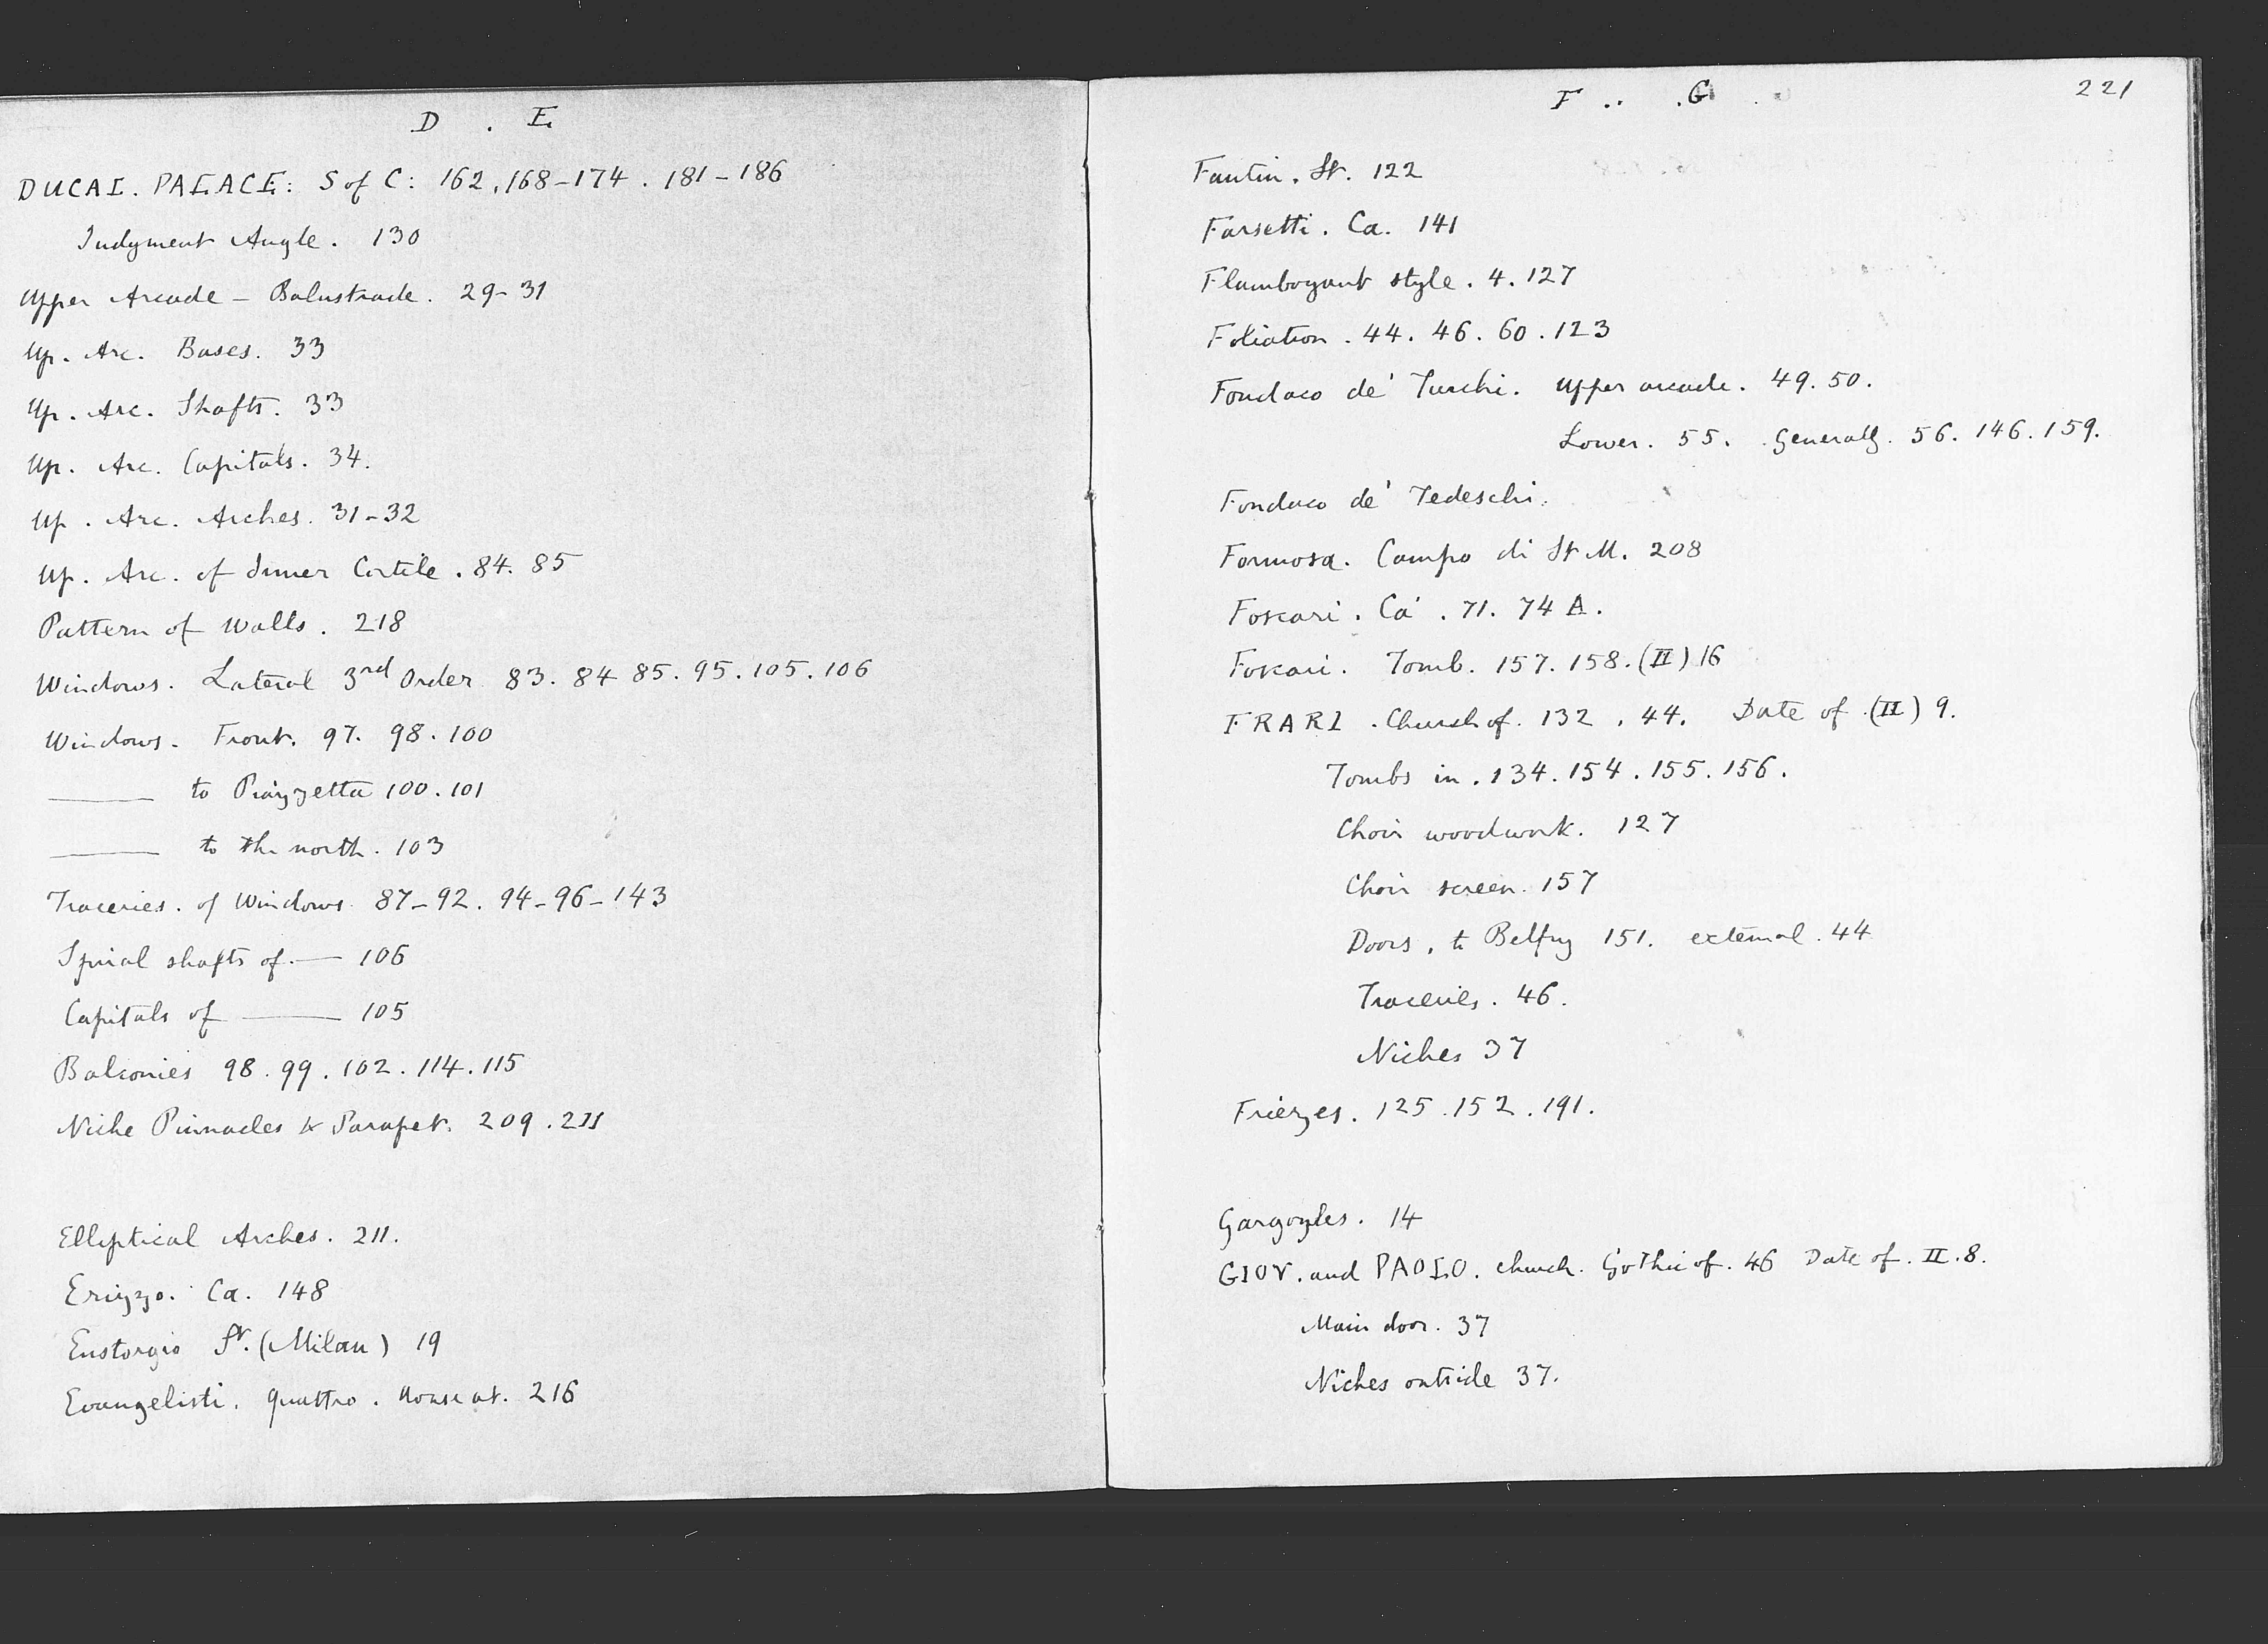 D . E
DUCAL. PALACE: S of C: 162, 168-174 . 181-186
Judgment Angle. 130
Upper Arcade - Balustrade. 29-31
Up. Arc. Bases. 33
Up. Arc. Shafts. 33
Up. Arc. Capitals. 34.
Up. Arc. Arches. 31-32
Up. Arc. of Inner Cortile. 84. 85
Pattern of Walls. 218
Windows. Lateral 3rd Order 83. 84 85. 95. 105. 106
Windows. Front. 97. 98. 100
—— to Piazzetta 100. 101
—— to the north. 103
Traceries. of Windows 87-92. 94-96-143
Spiral shafts of.— 106
Capitals of —— 105
Balconies 98. 99. 102. 114. 115
Niche Pinnacles & Parapet. 209. 211
Elliptical Arches. 211.
Erizzo. Ca. 148
Eustorgio St. (Milan) 19
Evangelisti. quattro. House at. 216
F .. .G 221
Fantin. St. 122
Farsetti. Ca. 141
Flamboyant style. 4. 127
Foliation. 44. 46. 60. 123
Fondaco de' Turchi. Upper arcade. 49. 50.
Lower. 55. Generally. 56. 146. 159.
Fondaco de' Tedeschi.
Formosa. Campo di St M. 208
Foscari. Ca'. 71. 74 A.
Foscari. Tomb. 157. 158. (II) 16
FRARI. Church of. 132 . 44. Date of. (II) 9.
Tombs in. 134. 154. 155. 156.
Choir woodwork. 127
Choir screen. 157
Doors, to Belfry 151. external. 44
Traceries. 46.
Niches 37
Friezes. 125. 152. 191.
Gargoyles. 14
GIOV. and PAOLO. church. Gothic of. 46 Date of. II. 8.
Main door. 37
Niches outside 37.